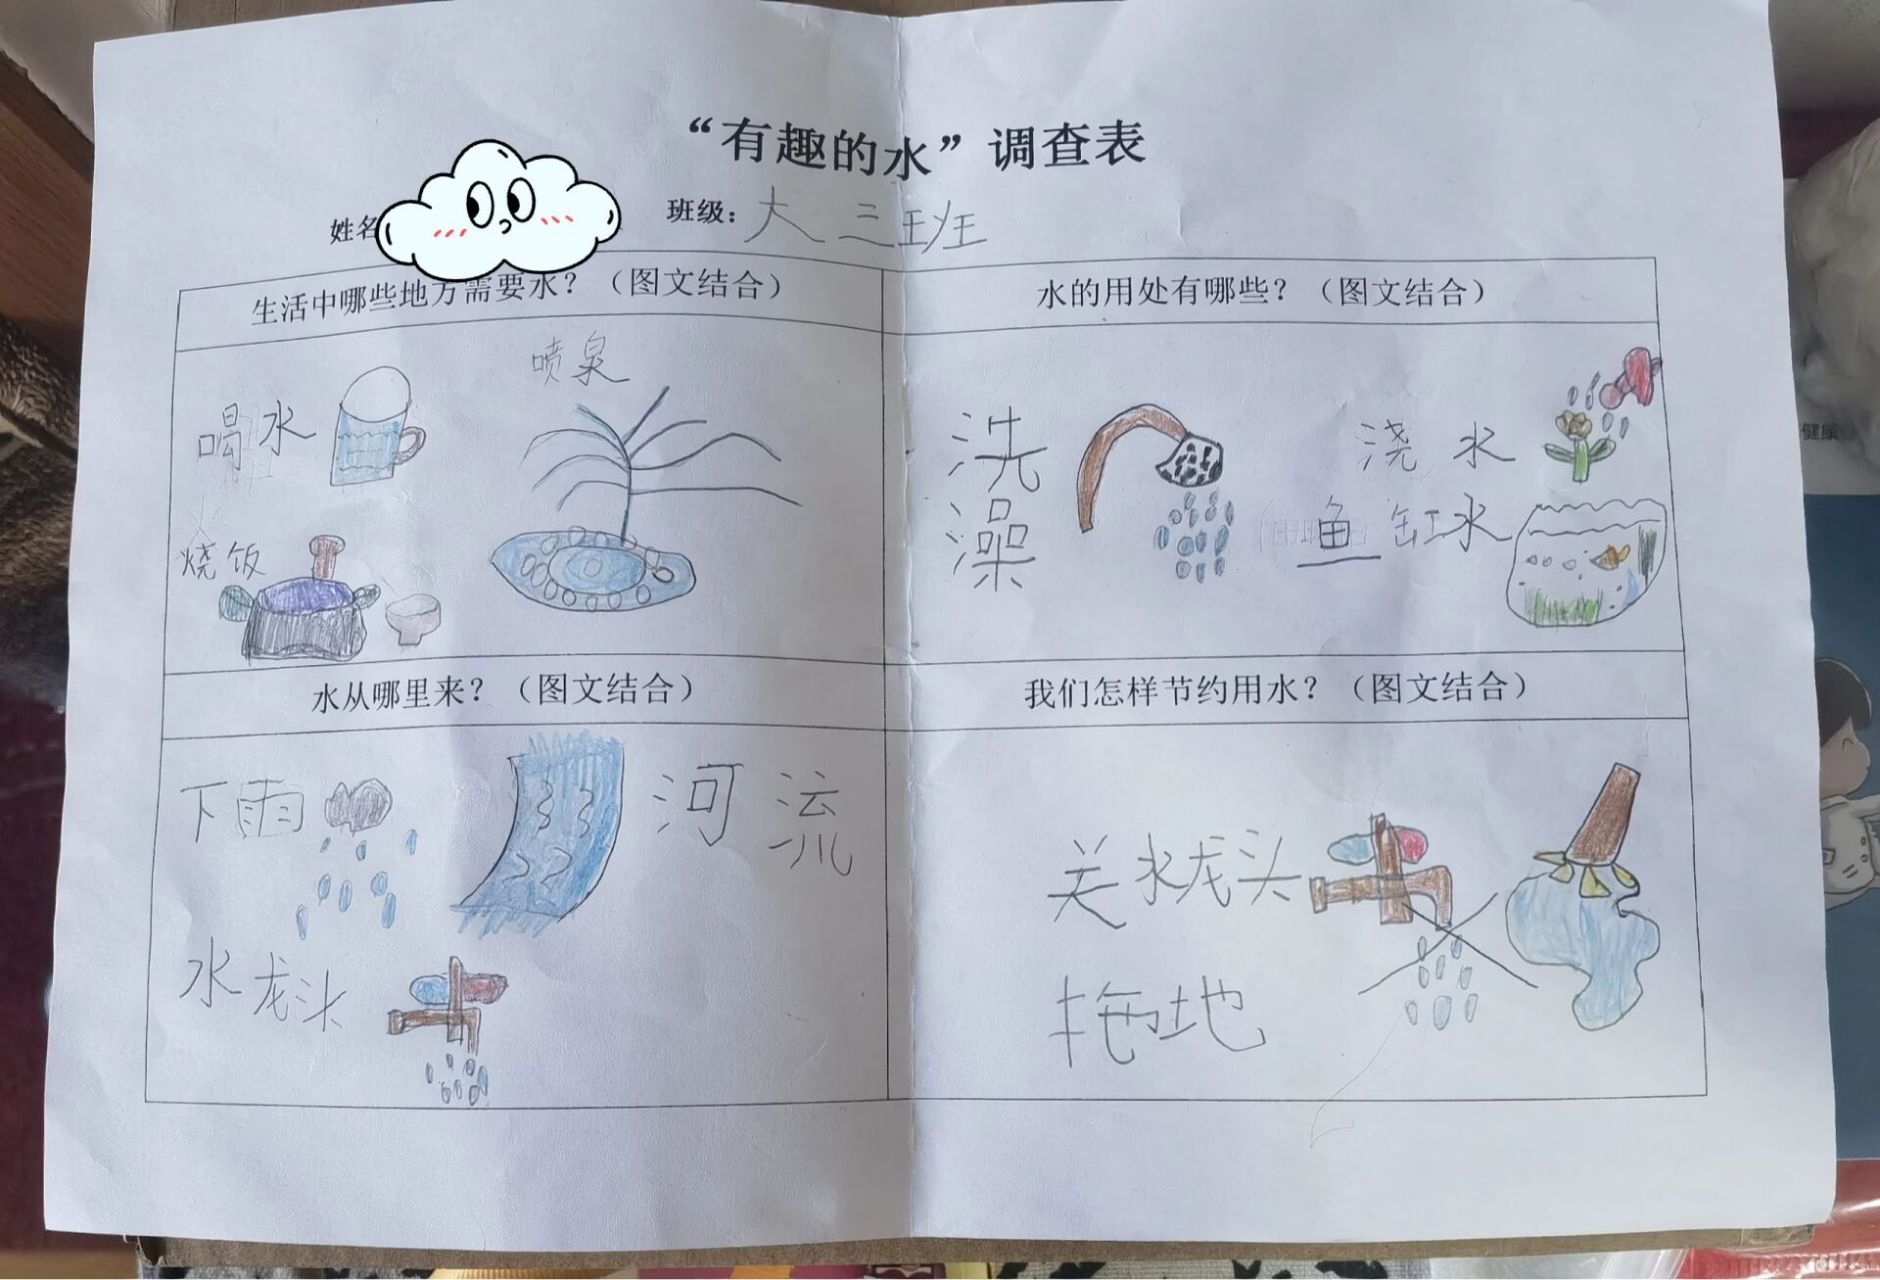 “有趣的水”调查表
姓名
班级：大三班
生活中哪些地方需要水？（图文结合）
水的用处有哪些？（图文结合）
喷泉
喝水
烧饭
洗澡
浇水
鱼缸水
水从哪里来？（图文结合）
我们怎样节约用水？（图文结合）
下雨
河流
水龙头
关水龙头
拖地
健康